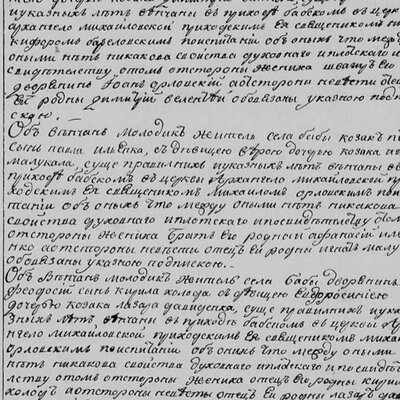 указныхъ лѣтъ вѣнчаны въ приходѣ бабскомъ въ церк
архангело михайловской приходскимъ Ея священикомъ
кифоромъ базелевскимъ поиспитаніи обоныхъ что меж
оными нѣтъ никакова свойства духовнаго иплотскаго и
свидѣтелству отомъ отстороны жениха швагръ Его
дворянинъ Іоанъ орловскій аотстороны невѣсти
Ей родны димитрій обовязаны указною подп
скою.
Объ вѣнчанъ молодикъ житель села бабы козакъ
сынъ павла именка, съ дѣвицею дочерью козака
малукала, суще правилнихъ иуказныхъ лѣтъ вѣнчаны в
приходѣ бабскомъ въ церкви архангело михайловской при
ходскимъ Ея священикомъ михаиломъ орловскимъ поис
питаніи обоныхъ что между оными нѣтъ никакова
свойства духовнаго иплотскаго ипосвидѣтелству отом
отстороны жениха братъ Его родный афанасій име
нко аотстороны невѣсти отецъ Ей родны малу
обовязаны указною подпискою.
Объ вѣнчанъ молодикъ житель села бабы дворянинъ
феодосій сынъ кирила холода съ дѣвицею Евфросиніею
дочерью козака лазара давиденка, суще правилнихъ иука
зныхъ лѣтъ вѣнчаны въ приходѣ бабскомъ въ церкви ар
нгело михайловской приходскимъ Ея священикомъ михаи
орловскимъ поиспитаніи обоныхъ что между оными
нѣтъ никакова свойства духовнаго иплотскаго ипосвидѣ
лству отомъ отстороны жениха отецъ Его родны кирил
холодъ аотстороны невѣсти отецъ Ей родны лазаръ дав